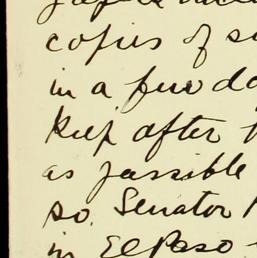 copies of
in a few da
keep after
as possible
so. Senator
in El Paso